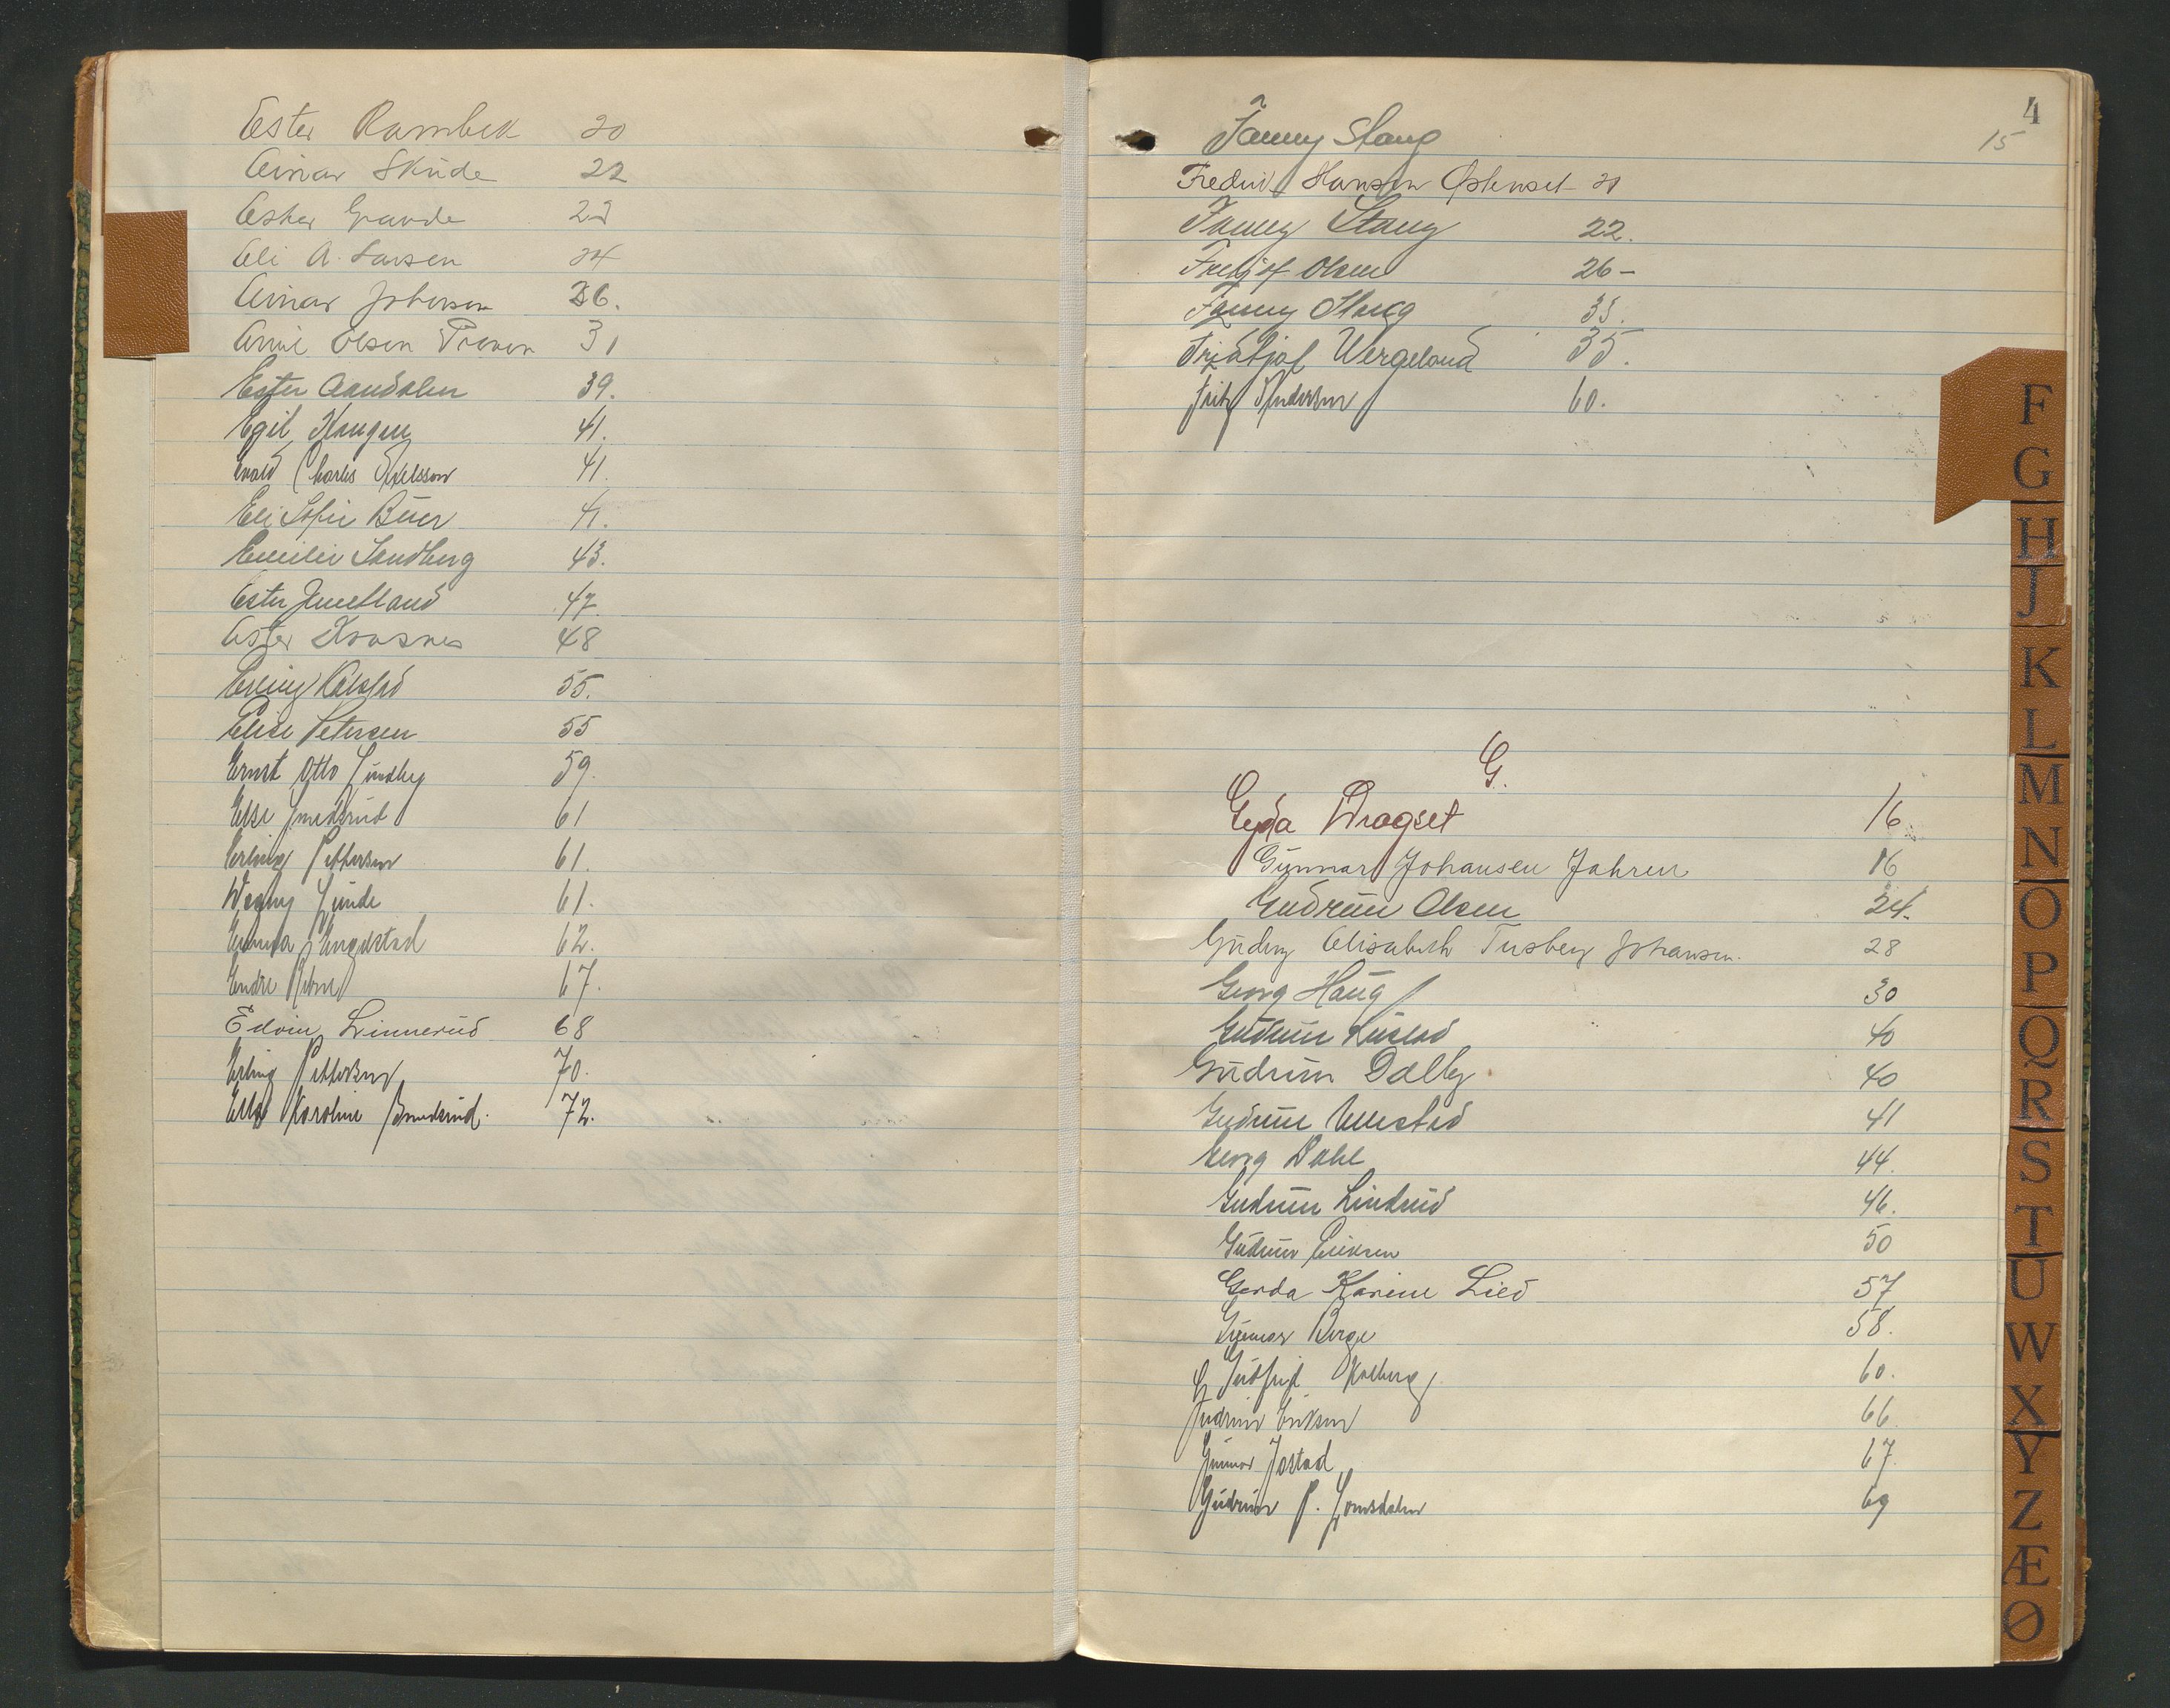 Ester Rambek 20
Einar Skude 22
Ester Grande 23
Eli A. Larsen 24
Einar Johansen 26.
Olsen 31
Ester Aandalen 39.
Egil Haugen 41.
Evald Charles Axelsson 41.
Eli Sofie Buer 41.
Emilie Sandberg 43.
Ester 47.
Ester 48
Erling 55.
Elise Petersen 55
Ernst Otto Lindberg 59.
Else Smedsrud 61
Erling Pettersen 61.
Lunde 61.
Engelstad 62.
Endre 67.
Edvin Linnerud 68
Erling Pettersen 70.
Else Karoline Smedsrud. 72.
4
Fanny Stang 15
Hansen Østenset 21
Fanny Stang 22.
Olsen 26 -
Fanny Stang 33.
Fridtjof Wergeland 35.
Fritz Andersen 60.
F
G
H
J
K
L
M
N
O
P
Q
R
S
T
U
W
X
Y
Z
Æ
Ø
G.
Gyda Dragset 16.
Gunnar Johansen Jahren 16
Gudrun Olsen 24.
Gudny Elisabeth Tusberg Johansen. 28
Georg Haug 30
Gudrun 40
Gudrun Dalby. 40
Gudrun Ullestad 41
Georg Dahl 44.
Gudrun Lindrud 46.
Gudrun Eriksen 50
Gerda Karine Lied 57
Gunnar Berge 58.
60.
Gudrun Eriksen 66.
Gunnar Jostad 67.
Gudrun P. Lomsdalen 69